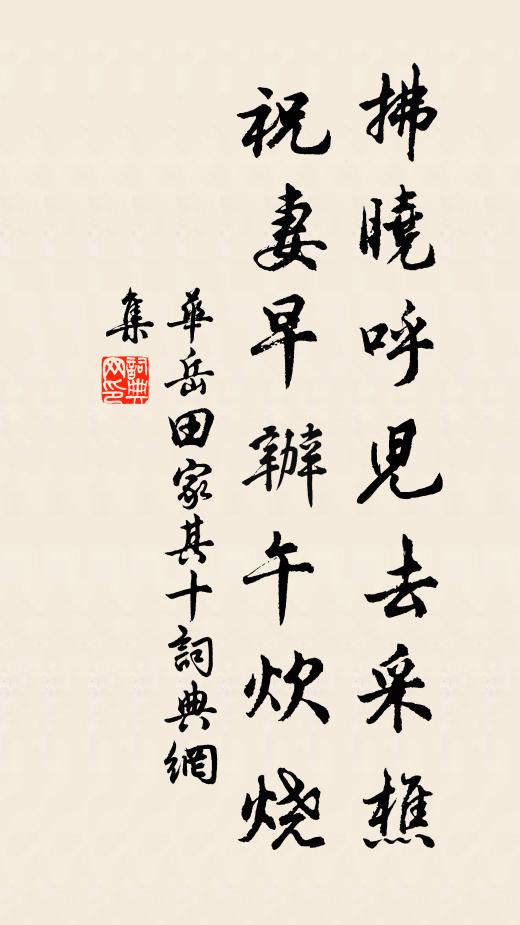 拂曉呼児去采樵
祝妻早辦午炊烧
華岳田家其十詞典網
集
詞典网印